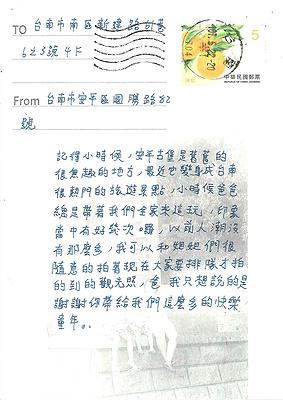 TO 台南市南區新建路51巷
623號4F
5
中華民國郵票
REPUBLIC OF CHINA (TAIWAN)
From 台南市安平區國勝路82
號
記得小時候,安平古堡是舊舊的
很無趣的地方,最近也變身成台南
很熱門的旅遊景點,小時候爸爸
總是帶著我們全家來這玩,印象
當中有好幾次囉,以前人潮沒
有那麼多,我可以和姐姐們很
隨意的拍著現在大家要排隊才拍
的到的觀光照,爸 我只想說的是
謝謝你帶給我們這麼多的快樂
童年。